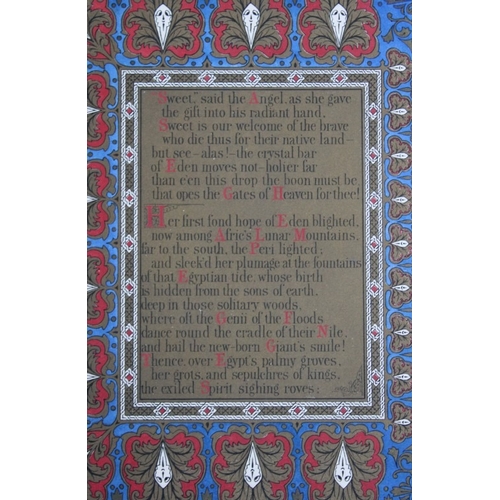 Sweet," said the Angel, as she gave
the gift into his radiant hand,
Sweet is our welcome of the brave
who die thus for their native land–
but see–alas!–the crystal bar
of Eden moves not–holier far
than e'en this drop the boon must be
that opes the Gates of Heaven for thee!
Her first fond hope of Eden blighted,
now among Afric's Lunar Mountains,
far to the south, the Peri lighted;
and sleek'd her plumage at the fountains
of that Egyptian tide, whose birth
is hidden from the sons of earth,
deep in those solitary woods,
where oft the Genii of the Floods
dance round the cradle of their Nile,
and hail the new-born Giant's smile!
Thence, over Egypt's palmy groves,
her grots, and sepulchres of kings,
the exiled Spirit sighing roves;